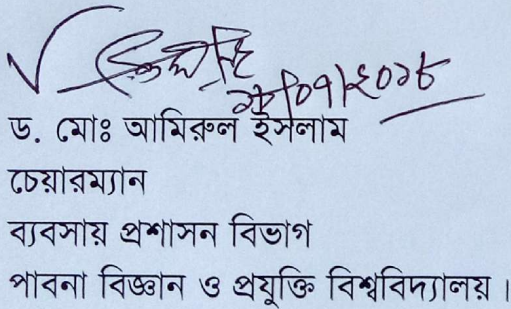 ১৮/০৭/২০১৮
ড. মোঃ আমিরুল ইসলাম
চেয়ারম্যান
ব্যবসায় প্রশাসন বিভাগ
পাবনা বিজ্ঞান ও প্রযুক্তি বিশ্ববিদ্যালয়।